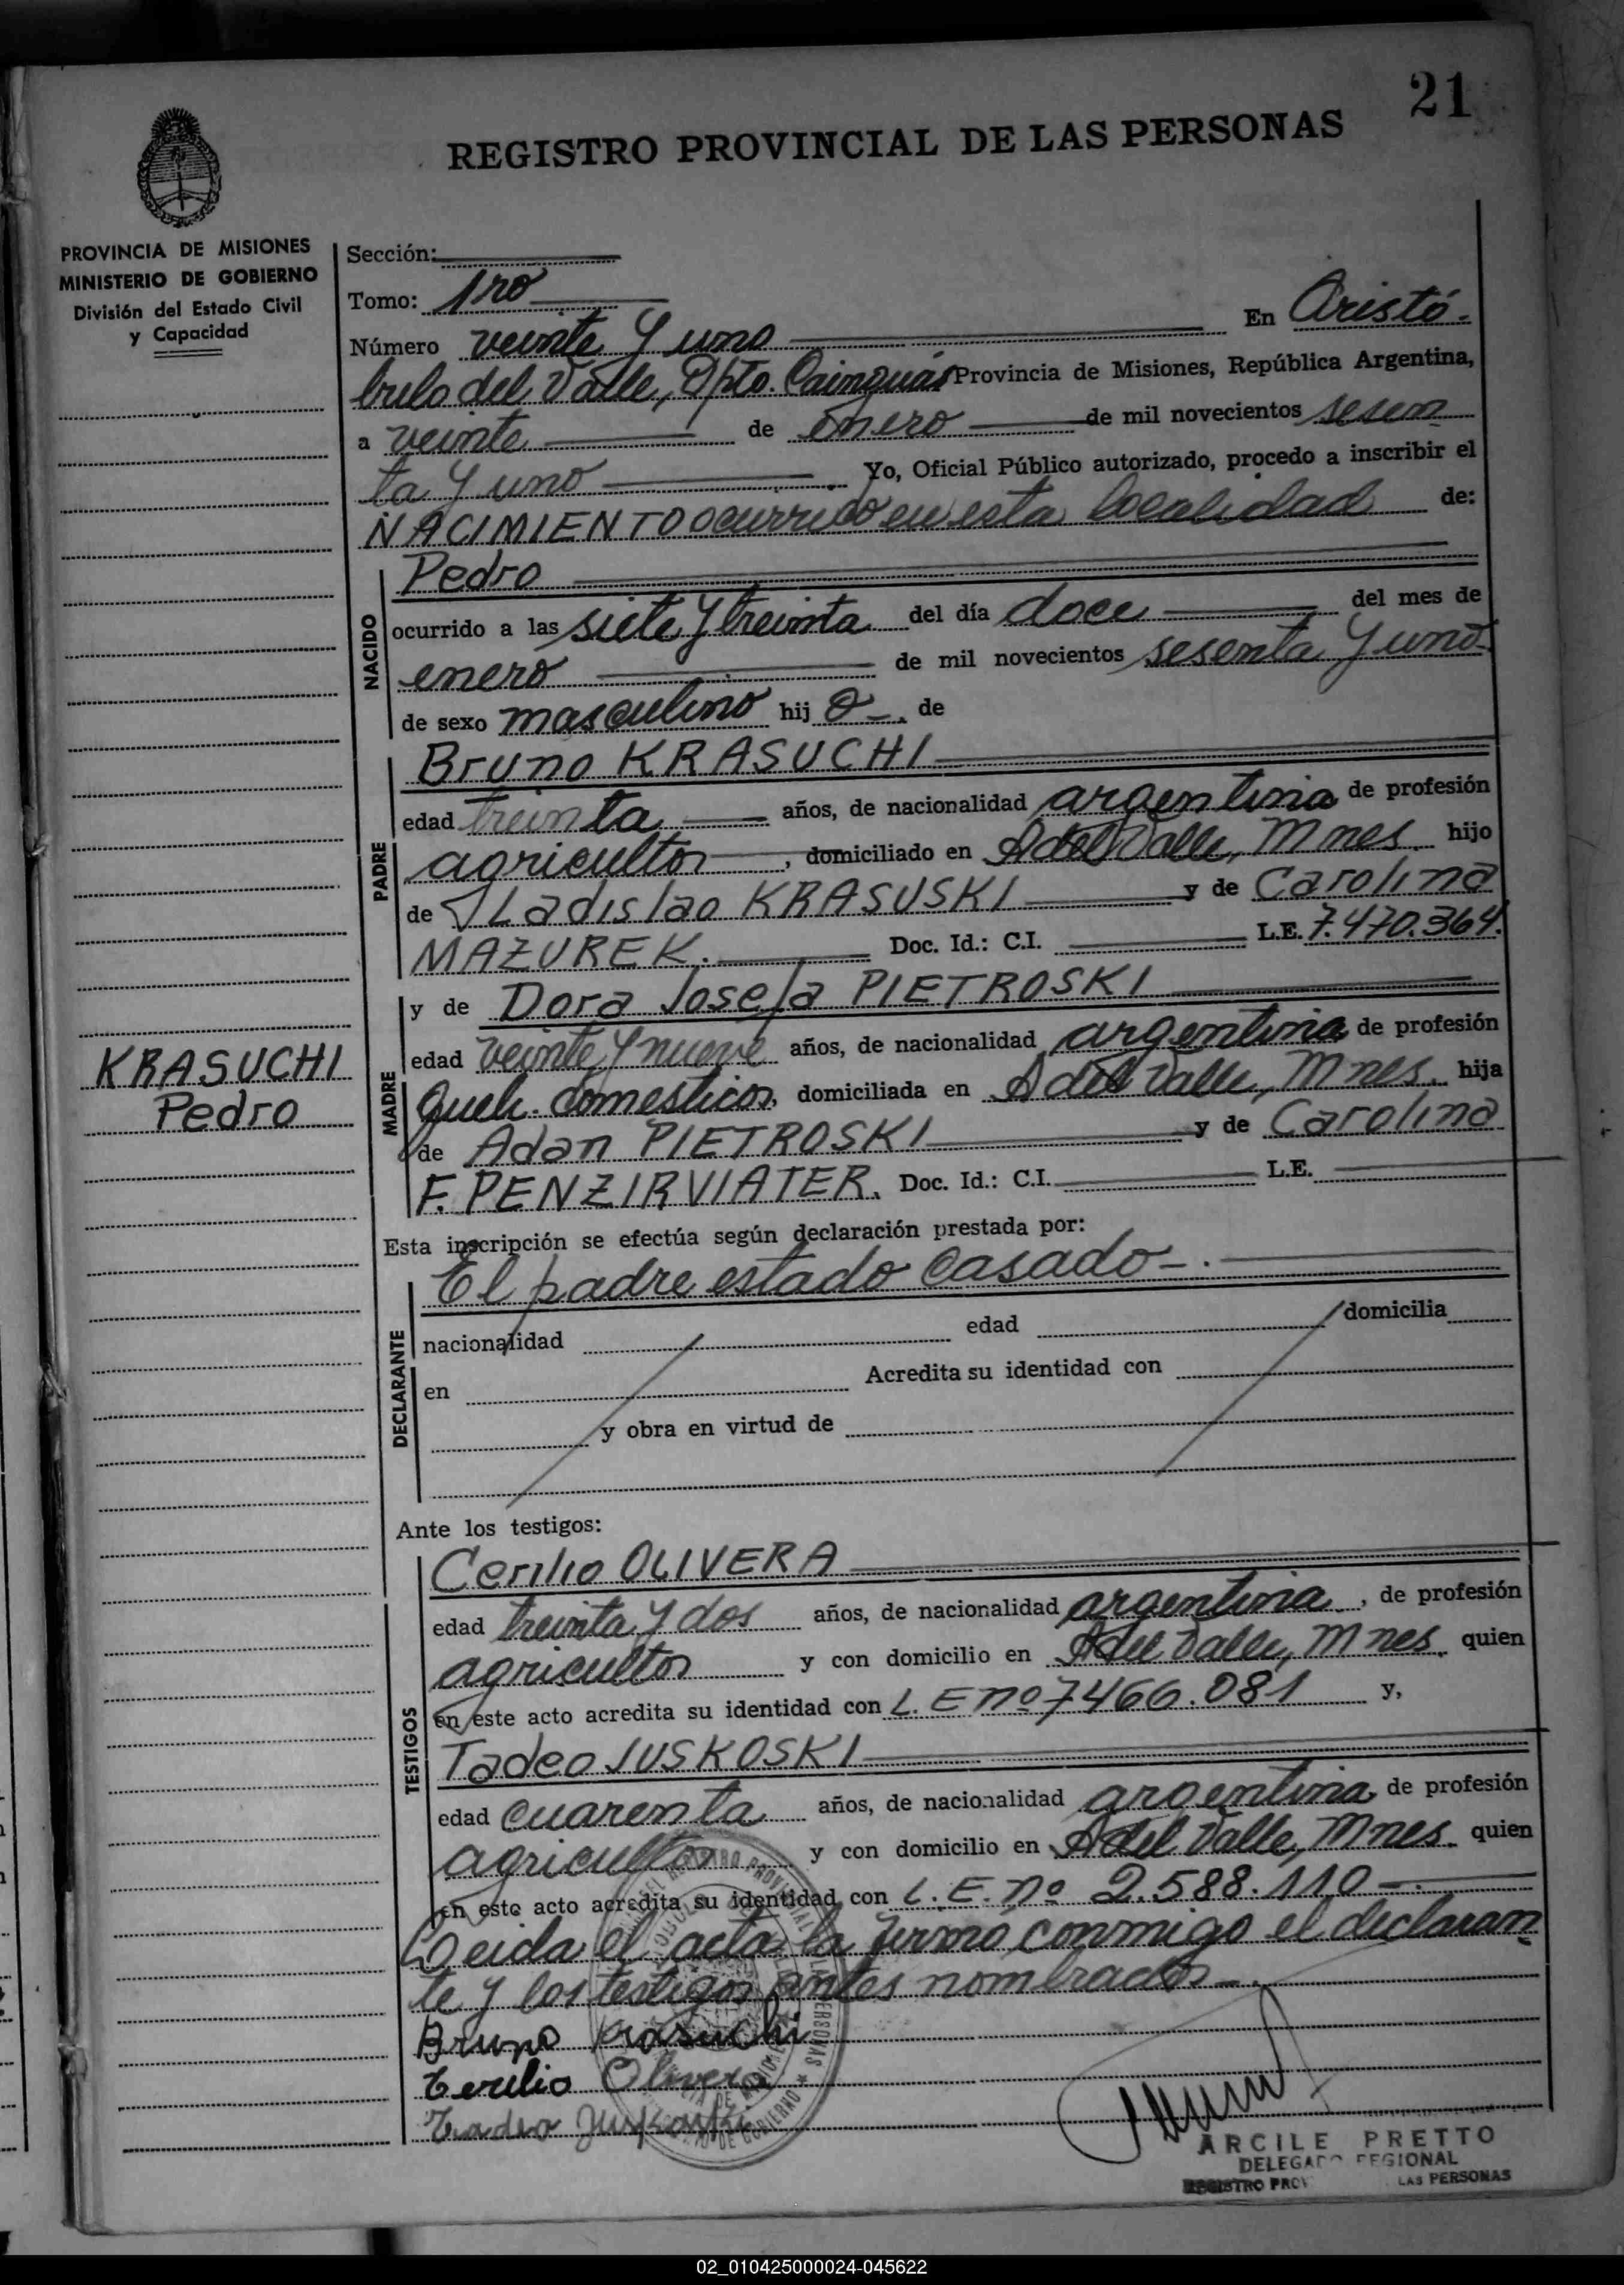 21
REGISTRO PROVINCIAL DE LAS PERSONAS
PROVINCIA DE MISIONES
MINISTERIO DE GOBIERNO
División del Estado Civil
y Capacidad
Sección:
Tomo: 1ro
Número veinte y uno En Aristó-
bulo del Valle, Dpto. Cainguás Provincia de Misiones, República Argentina,
a veinte de enero de mil novecientos sesen
ta y uno Yo, Oficial Público autorizado, procedo a inscribir el
NACIMIENTO ocurrido en esta localidad de:
NACIDO
Pedro
ocurrido a las siete y treinta del día doce del mes de
enero de mil novecientos sesenta y uno
de sexo masculino hij o . de
PADRE
Bruno KRASUCHI
edad treinta años, de nacionalidad argentina de profesión
agricultor, domiciliado en A del Valle, Mnes. hijo
de Ladislao KRASUSKI y de Carolina
MAZUREK. Doc. Id.: C.I. L.E. 7.470.364.
MADRE
y de Dora Josefa PIETROSKI
edad veinte y nueve años, de nacionalidad argentina de profesión
Queh. domesticos, domiciliada en A del Valle, Mnes. hija
de Adan PIETROSKI y de Carolina
F. PENZIRVIATER. Doc. Id.: C.I. L.E.
KRASUCHI
Pedro
Esta inscripción se efectúa según declaración prestada por:
DECLARANTE
El padre estado casado-.
nacionalidad edad domicilia
en Acredita su identidad con
y obra en virtud de
Ante los testigos:
TESTIGOS
Cerilio OLIVERA
edad treinta y dos años, de nacionalidad argentina, de profesión
agricultor y con domicilio en A del Valle, Mnes. quien
en este acto acredita su identidad con L. E nº 7466.081 y,
Tadeo JUSKOSKI
edad cuarenta años, de nacionalidad argentina de profesión
agricultor y con domicilio en A del Valle, Mnes. quien
en este acto acredita su identidad con L. E. nº 2.588.110-.
Leida el acta la firmó conmigo el declaran
te y los testigos antes nombrados-.
Bruno Krasuchi
Cerilio Olivera
Tadeo Juskoski
ARCILE PRETTO
DELEGADO REGIONAL
REGISTRO PROV LAS PERSONAS
02_010425000024-045622